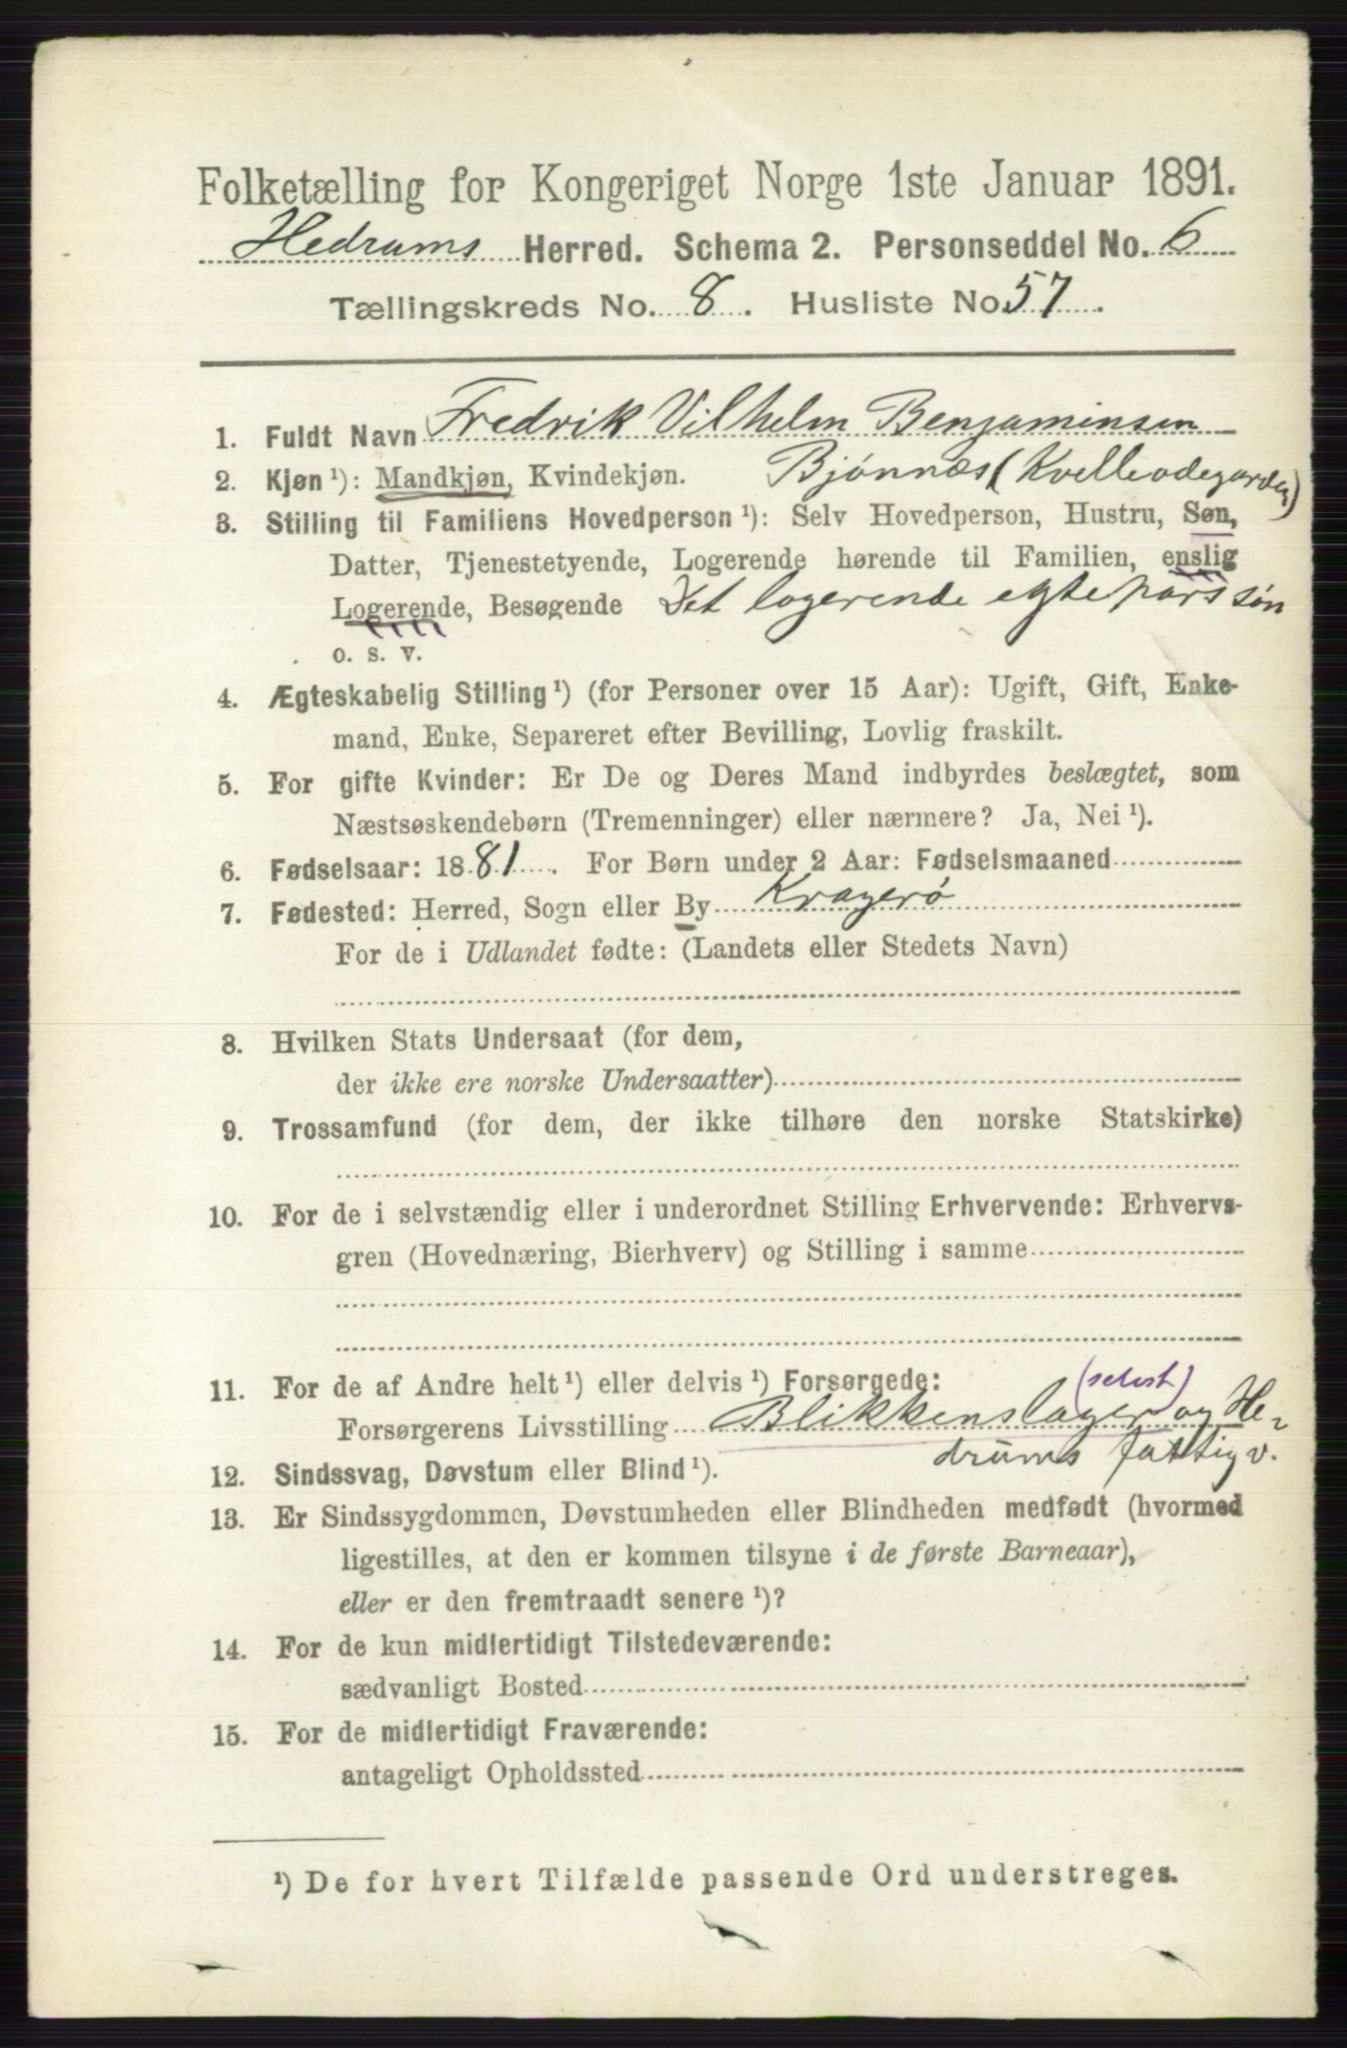 Folketælling for Kongeriget Norge 1ste Januar 1891.
Hedrums Herred. Schema 2. Personseddel No. 6
Tællingskreds No. 8. Husliste No. 57.
1. Fuldt Navn Fredrik Vilhelm Benjaminsen
2. Kjøn ¹): Mandkjøn, Kvindekjøn. Bjönnæs (Kvelleødegarden)
3. Stilling til Familiens Hovedperson ¹): Selv Hovedperson, Hustru, Søn,
Datter, Tjenestetyende, Logerende hørende til Familien, enslig
Logerende, Besøgende Det logerende egtepars sön
o. s. v.
4. Ægteskabelig Stilling ¹) (for Personer over 15 Aar): Ugift, Gift, Enke-
mand, Enke, Separeret efter Bevilling, Lovlig fraskilt.
5. For gifte Kvinder: Er De og Deres Mand indbyrdes beslægtet, som
Næstsøskendebørn (Tremenninger) eller nærmere? Ja, Nei ¹).
6. Fødselsaar: 1881. For Børn under 2 Aar: Fødselsmaaned
7. Fødested: Herred, Sogn eller By Kragerö
For de i Udlandet fødte: (Landets eller Stedets Navn)
8. Hvilken Stats Undersaat (for dem,
der ikke ere norske Undersaatter)
9. Trossamfund (for dem, der ikke tilhøre den norske Statskirke)
10. For de i selvstændig eller i underordnet Stilling Erhvervende: Erhvervs-
gren (Hovednæring, Bierhverv) og Stilling i samme
11. For de af Andre helt ¹) eller delvis ¹) Forsørgede:
(selvst)
Forsørgerens Livsstilling Blikkenslager og He-
drums fattigv.
12. Sindssvag, Døvstum eller Blind ¹).
13. Er Sindssygdommen, Døvstumheden eller Blindheden medfødt (hvormed
ligestilles, at den er kommen tilsyne i de første Barneaar),
eller er den fremtraadt senere ¹)?
14. For de kun midlertidigt Tilstedeværende:
sædvanligt Bosted
15. For de midlertidigt Fraværende:
antageligt Opholdssted
¹) De for hvert Tilfælde passende Ord understreges.